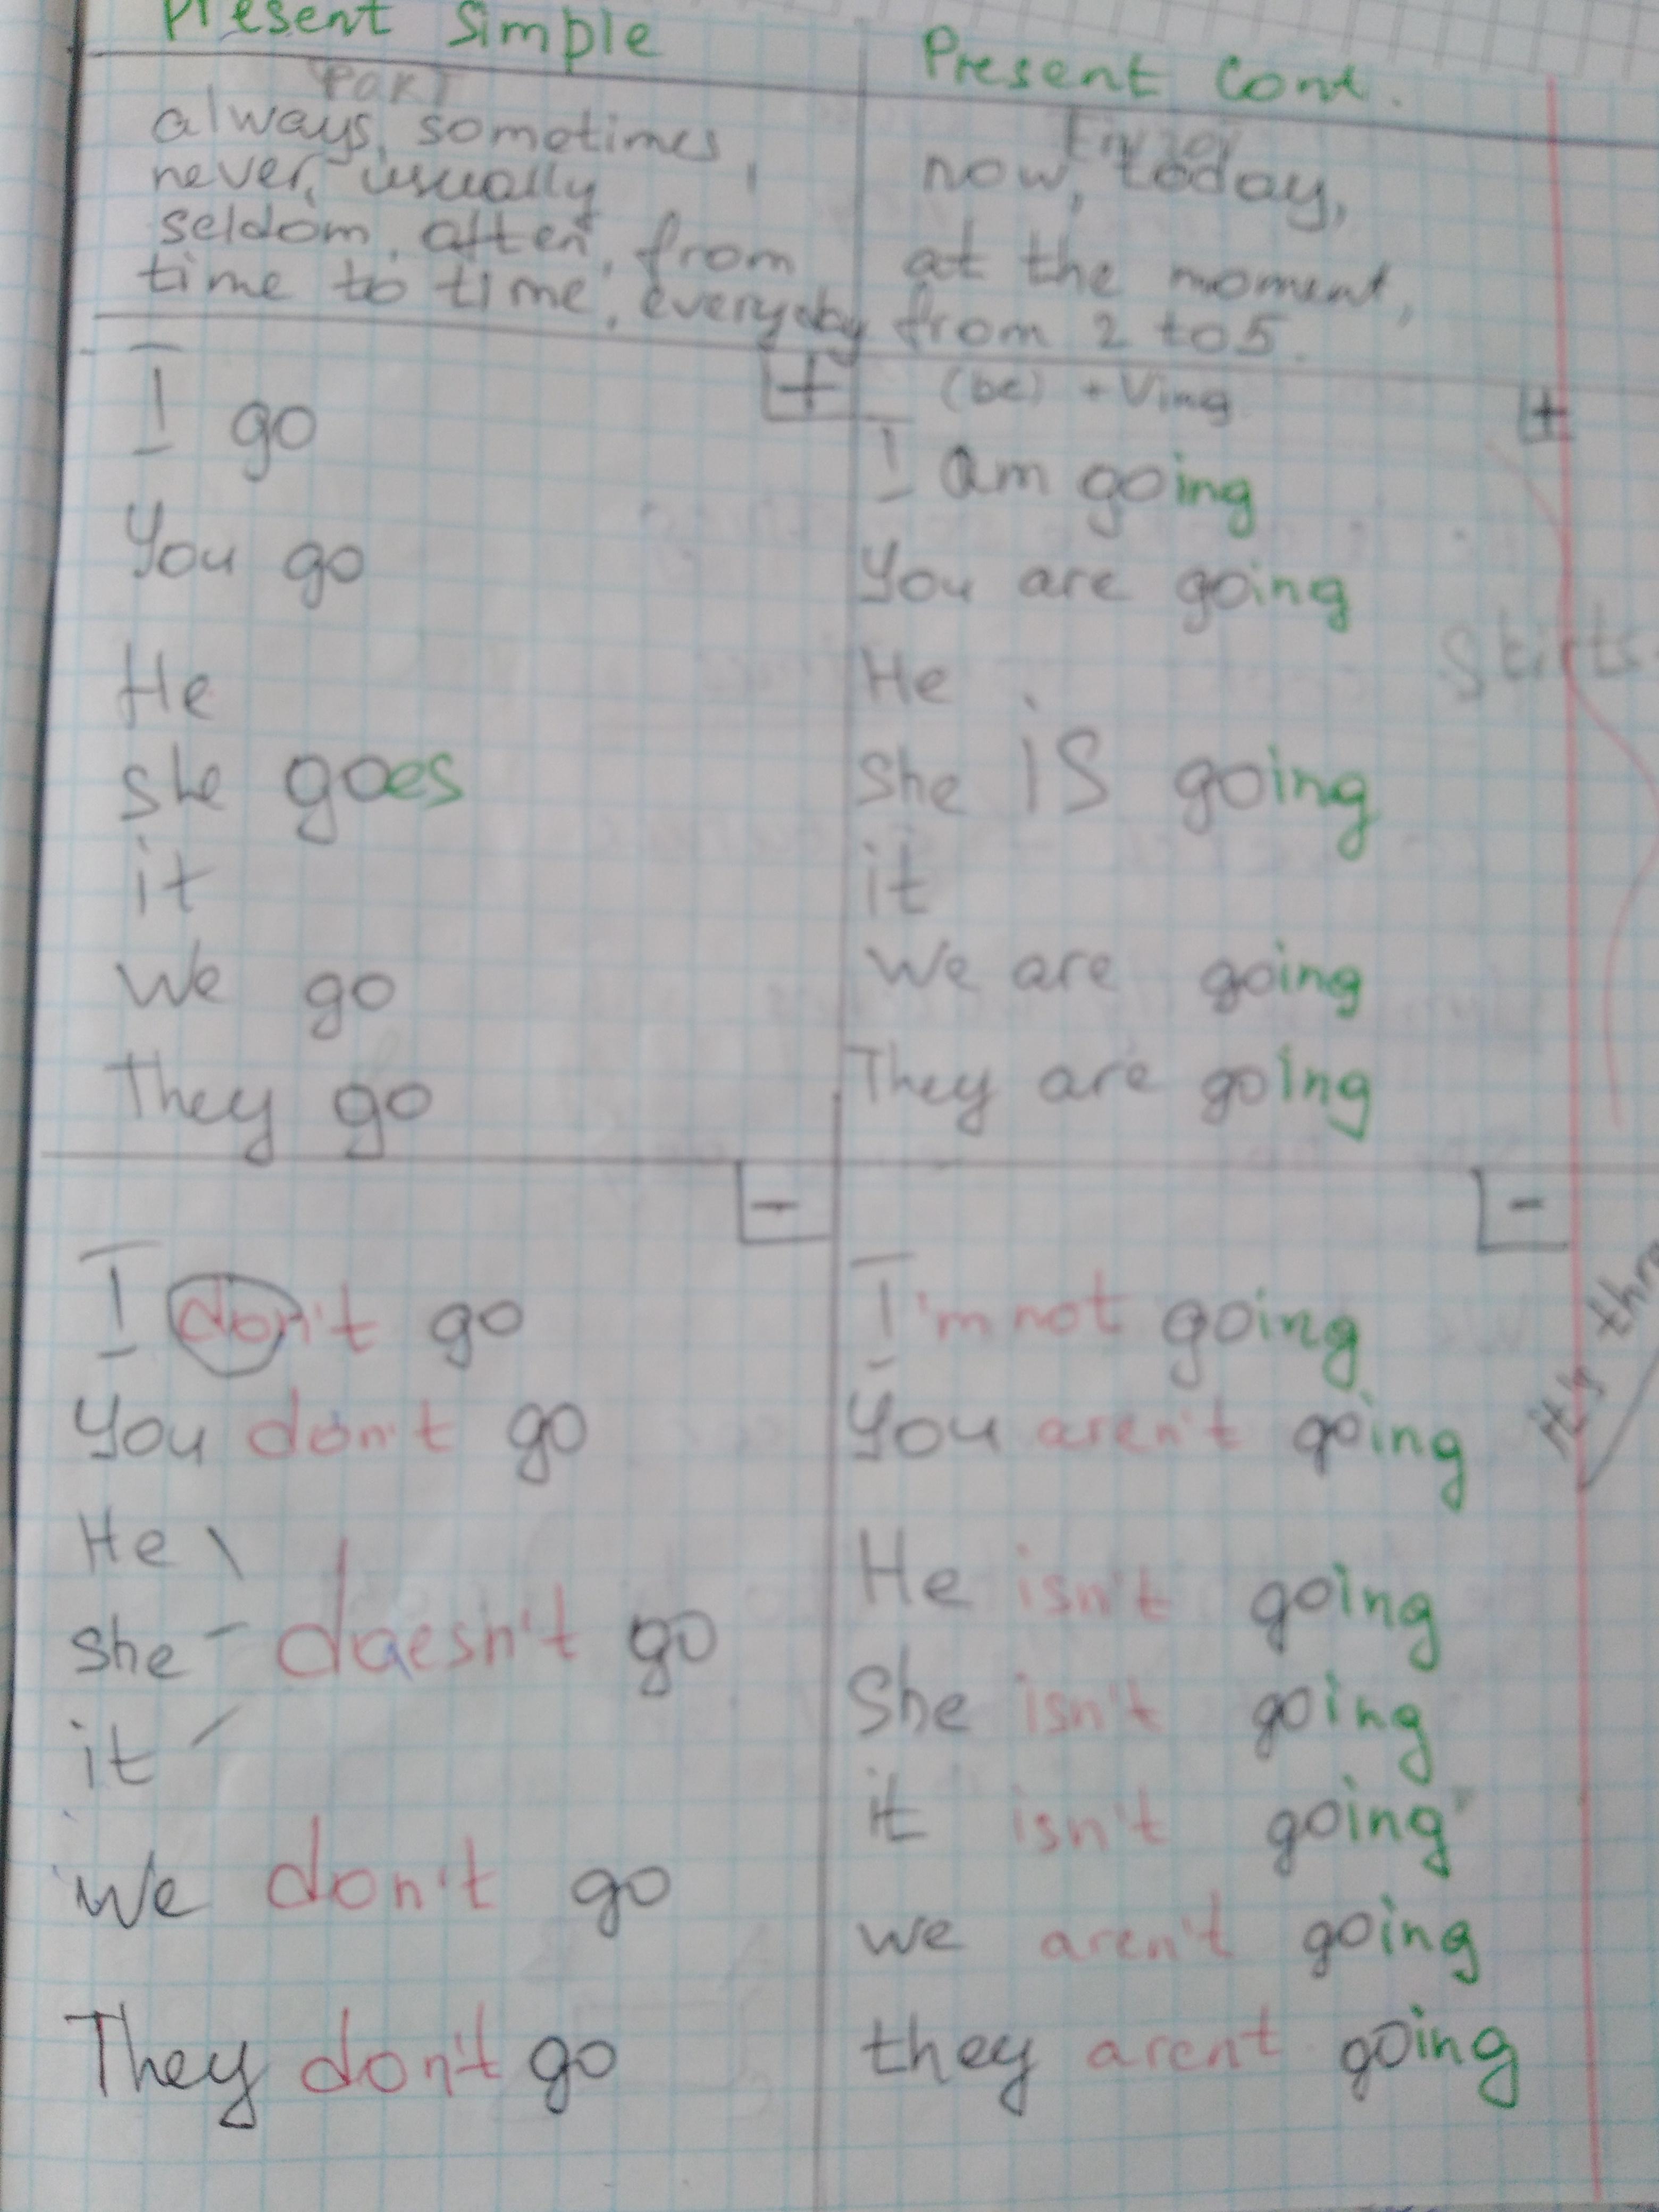 Present Simple
факт
always, sometimes,
never, usually
seldom, often, from
time to time, everyday
I go
You go
He
she goes
it
We go
They go
I don't go
You don't go
He
she doesn't go
it
we don't go
They don't go
Present Cont.
now, today,
at the moment,
from 2 to 5.
(be) + Ving
I am going
You are going
He
She is going
it
We are going
They are going
I'm not going
You aren't going
He isn't going
She isn't going
it isn't going
we aren't going
they arent going
+
+
-
-